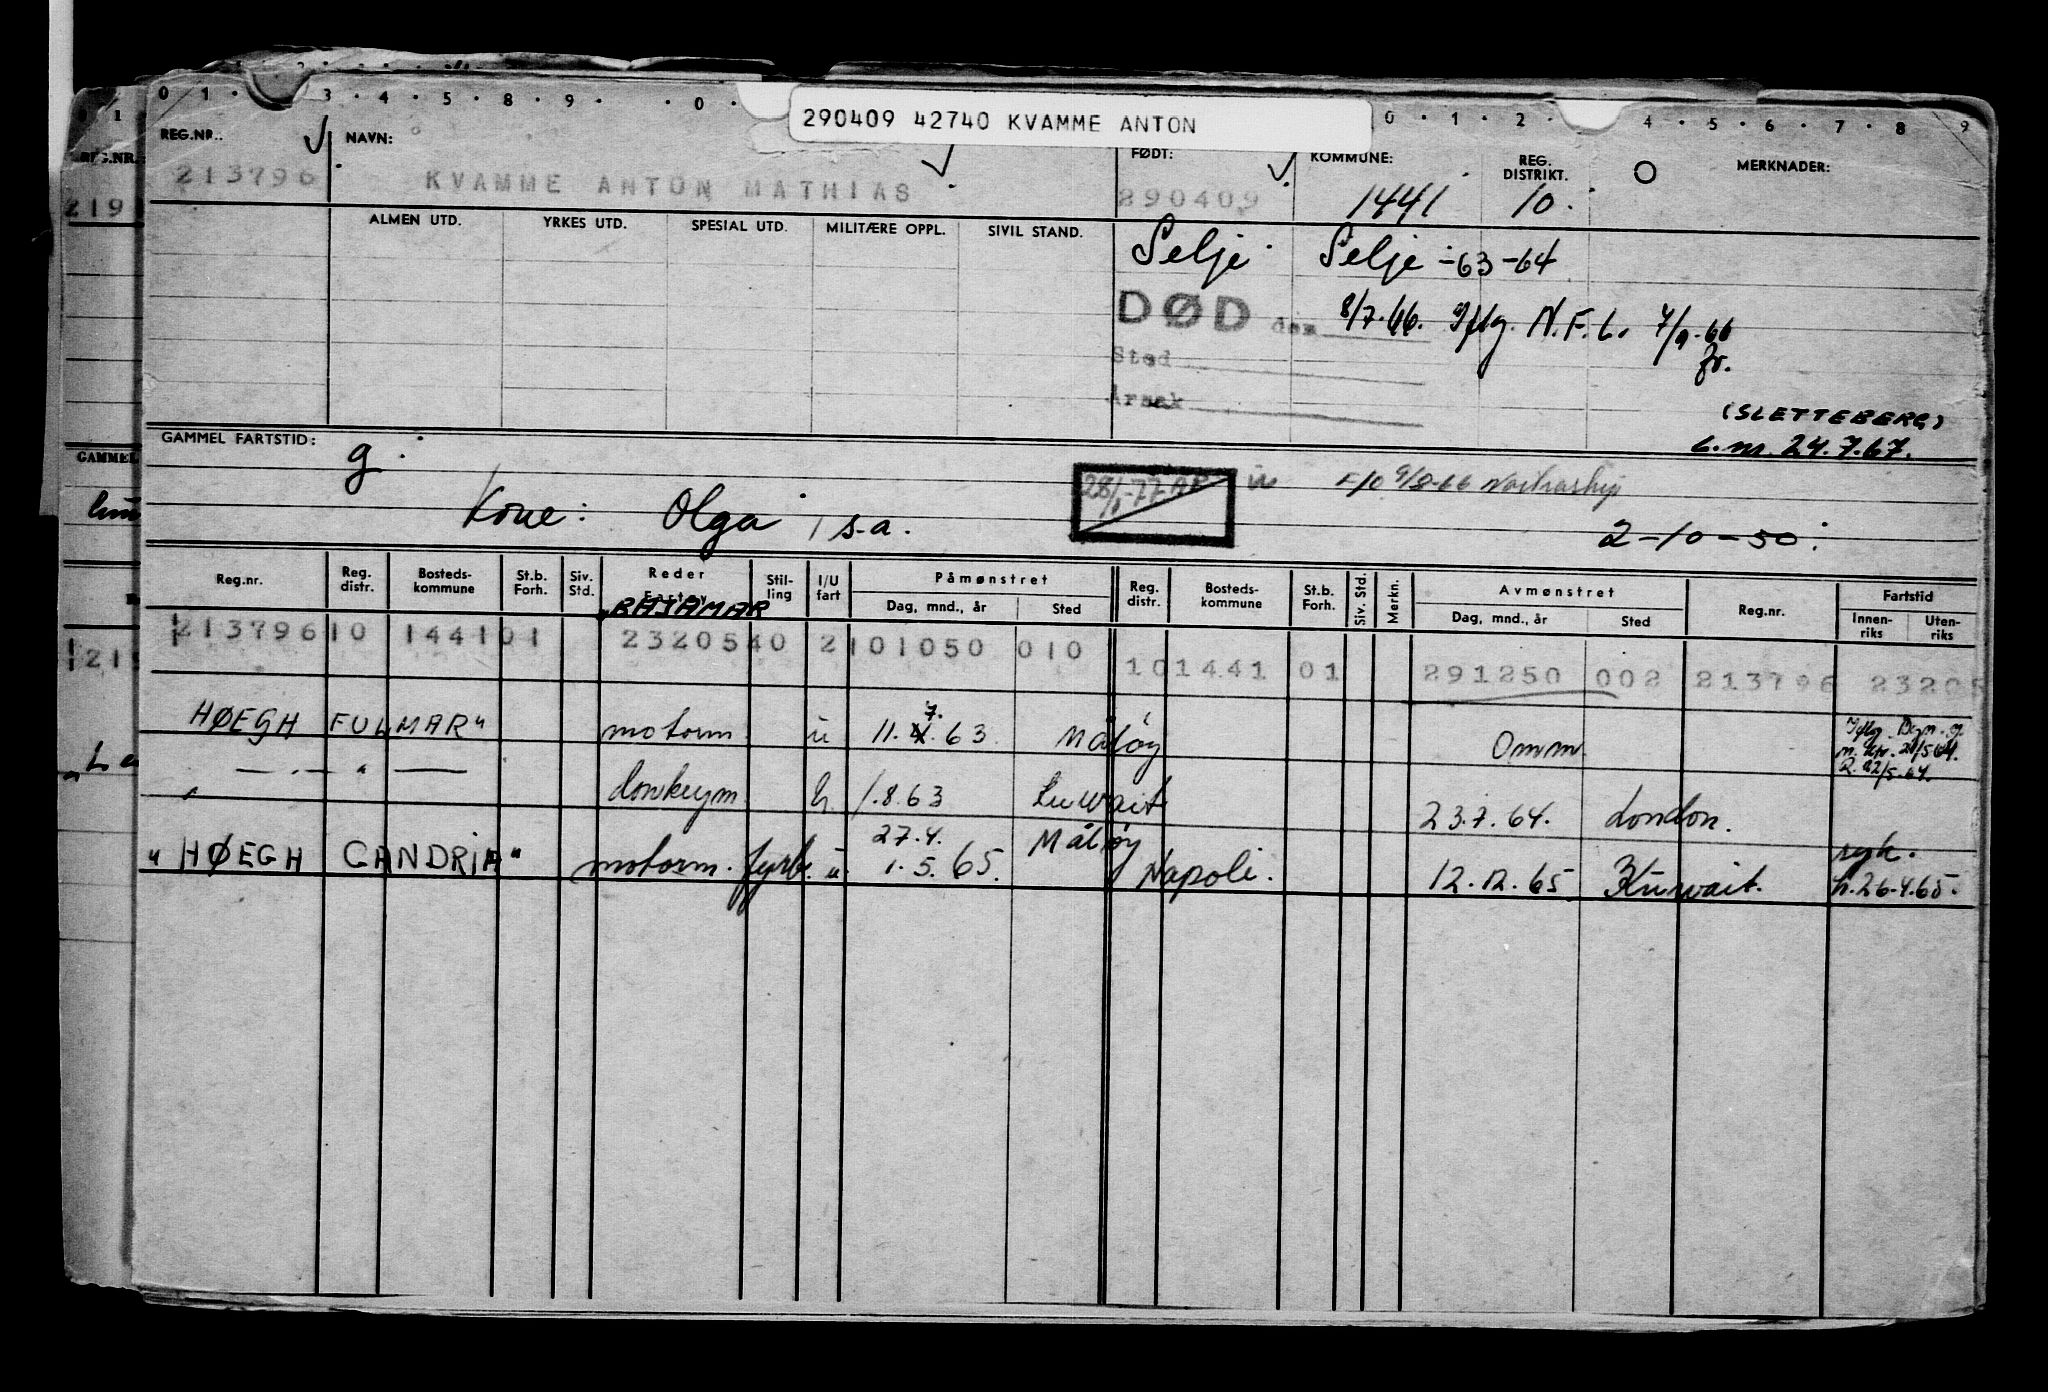 0 1 · 3 · 4 · 5 · 8 · 9 · · 0 · 0 · 1 · 2 · 4 · 5 · 6 · 7 · 8 9
290409 42740 KVAMME ANTON
REG.NR.. NAVN: FØDT: KOMMUNE: REG. DISTRIKT. MERKNADER:
213796 KVAMME ANTON MATHIAS 290409 1441 10.
ALMEN UTD. YRKES UTD. SPESIAL UTD. MILITÆRE OPPL. SIVIL STAND.
Selje Selje -63-64
DØD den 8/7.66. Iflg. N.F.L. 7/9.66
Sted
Årsak
(SLETTEBERG)
L.m. 24.7.67.
GAMMEL FARTSTID: g.
28/1-77 F/O 9/8-66 Nortraship
Kone: Olga s.a.
2-10-50.
Reg.nr. Reg. distr. Bosteds- kommune St.b. Forh. Siv. Std. Reder Fartøy Stil- ling I/U fart Påmønstret Dag, mnd., år Sted Reg. distr. Bosteds- kommune St.b. Forh. Siv. Std. Merkn. Avmønstret Dag, mnd., år Sted Reg.nr. Fartstid Innen- riks Uten- riks
"BAJAMAR
213796 10 1441 01 2320540 2 101050 010 10 1441 01 291250 002 213796 23205
HØEGH FULMAR" motorm. u 11.7.63 Måløy Omm. Iflg.
— " — donkeym. u. 1.8.63 Kuwait 23.7.64. London.
"HØEGH GANDRIA" motorm. fyrb. u. 27.4. 1.5.65. Måløy Napoli. 12.12.65 Kuwait. syk. h.26.4.65.
REG.NR.
219
GAMMEL
219